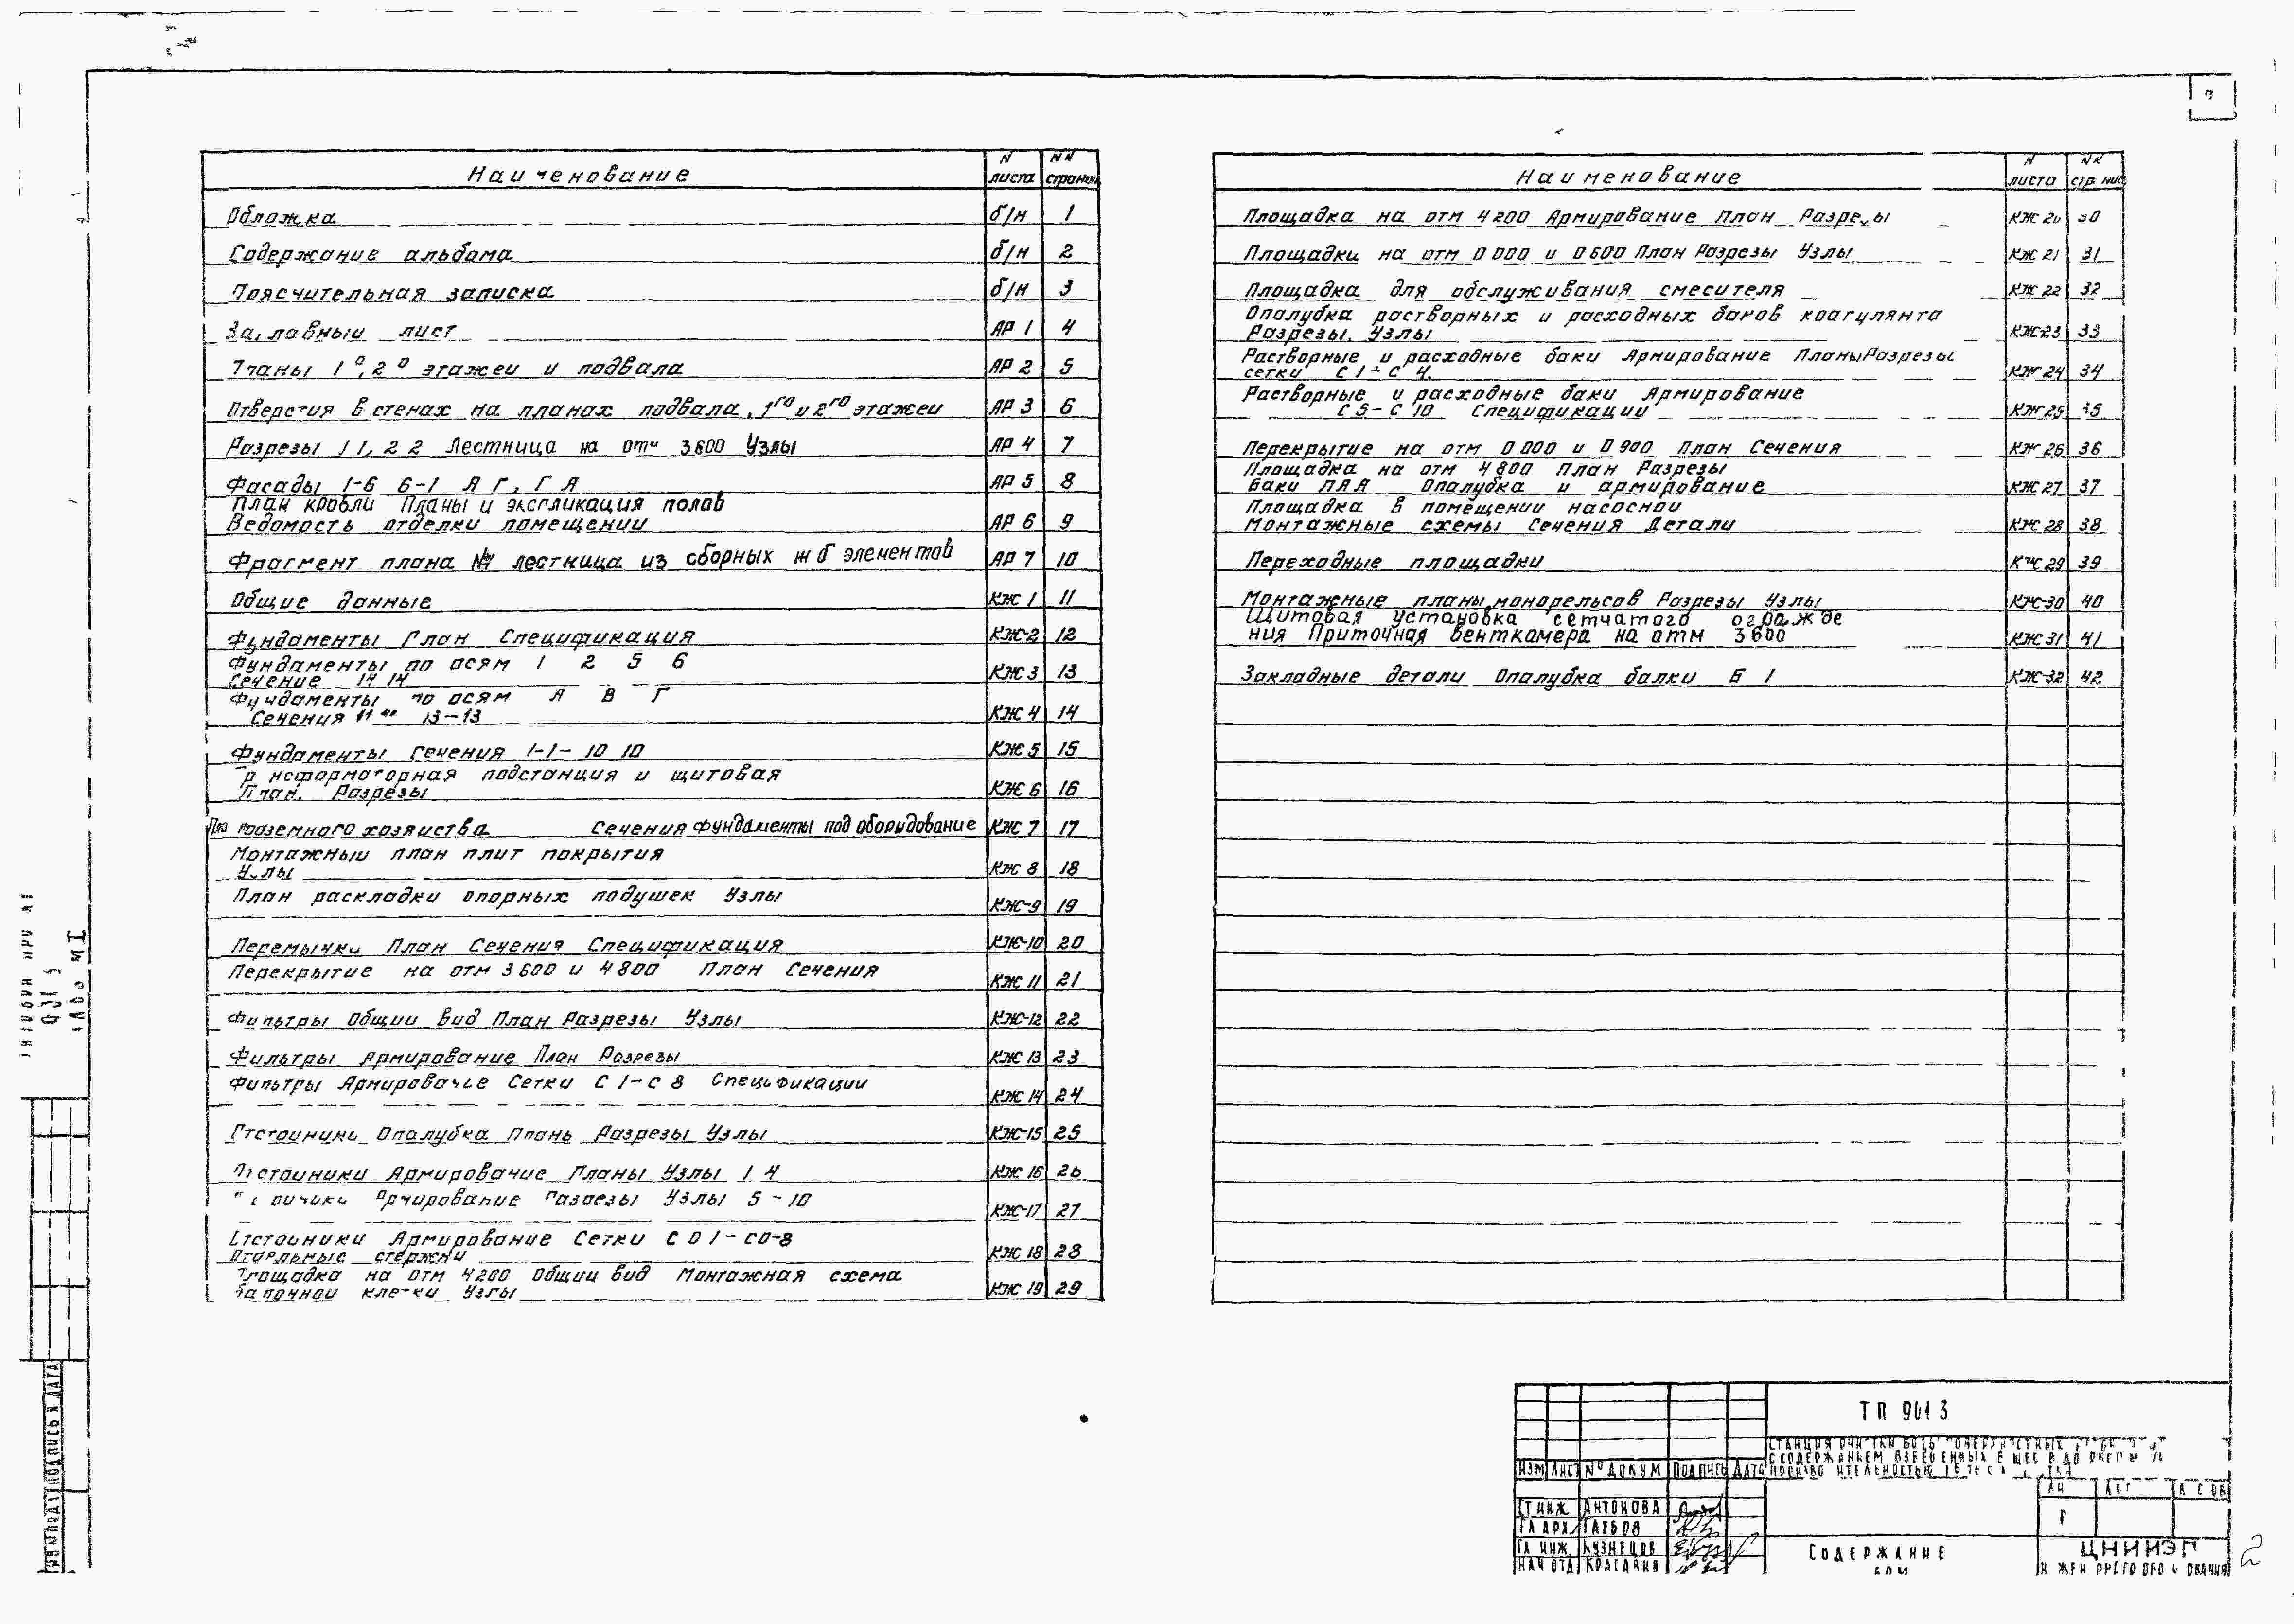 Наименование N листа NN страниц
Обложка б/н 1
Содержание альбома б/н 2
Пояснительная записка б/н 3
Заглавный лист АР 1 4
Планы 1го, 2го этажей и подвала АР 2 5
Отверстия в стенах на планах подвала, 1го и 2го этажей АР 3 6
Разрезы 1 1, 2 2 Лестница на отм 3600 Узлы АР 4 7
Фасады 1-6 6-1 А Г, Г А АР 5 8
План кровли Планы и экспликация полов
Ведомость отделки помещений АР 6 9
Фрагмент плана №1 лестница из сборных ж б элементов АР 7 10
Общие данные КЖ 1 11
Фундаменты План Спецификация КЖ-2 12
Фундаменты по осям 1 2 5 6
Сечение 14 14 КЖ 3 13
Фундаменты по осям А В Г
Сечения 11 13-13 КЖ 4 14
Фундаменты Сечения 1-1- 10 10 КЖ 5 15
Трансформаторная подстанция и щитовая
План. Разрезы КЖ 6 16
План подземного хозяйства Сечения Фундаменты под оборудование КЖ 7 17
Монтажный план плит покрытия
Узлы КЖ 8 18
План раскладки опорных подушек Узлы КЖ-9 19
Перемычки План Сечения Спецификация КЖ-10 20
Перекрытие на отм 3600 и 4800 План Сечения КЖ 11 21
Фильтры Общий вид План Разрезы Узлы КЖ-12 22
Фильтры Армирование План Разрезы КЖ 13 23
Фильтры Армирование Сетки С 1-С 8 Спецификации КЖ 14 24
Отстойники Опалубка Планы Разрезы Узлы КЖ-15 25
Отстойники Армирование Планы Узлы 1 4 КЖ 16 26
Отстойники Армирование Разрезы Узлы 5-10 КЖ-17 27
Отстойники Армирование Сетки С О 1-СО-8
Отдельные стержни КЖ 18 28
Площадка на отм 4200 Общий вид Монтажная схема
балочной клетки Узлы КЖ 19 29
Наименование N листа NN страниц
Площадка на отм 4200 Армирование План Разрезы КЖ 20 30
Площадки на отм 0 000 и 0 600 План Разрезы Узлы КЖ 21 31
Площадка для обслуживания смесителя КЖ 22 32
Опалубка растворных и расходных баков коагулянта
Разрезы. Узлы КЖ-23 33
Растворные и расходные баки Армирование Планы Разрезы
сетки С 1-С 4. КЖ 24 34
Растворные и расходные баки Армирование
С 5-С 10 Спецификации КЖ 25 35
Перекрытие на отм 0 000 и 0 900 План Сечения КЖ 26 36
Площадка на отм 4800 План Разрезы
Баки ПАА Опалубка и армирование КЖ 27 37
Площадка в помещении насосной
Монтажные схемы Сечения Детали КЖ 28 38
Переходные площадки КЖ 29 39
Монтажные планы монорельсов Разрезы Узлы КЖ-30 40
Щитовая установка сетчатого огражде
ния Приточная венткамера на отм 3600 КЖ 31 41
Закладные детали Опалубка балки Б 1 КЖ-32 42
ТП 901 3
СТАНЦИЯ ОЧИСТКИ ВОДЫ ПОВЕРХНОСТНЫХ
С СОДЕРЖАНИЕМ ВЗВЕШЕННЫХ ВЕЩЕСТВ ДО
ПРОИЗВОДИТЕЛЬНОСТЬЮ
ИЗМ ЛИСТ № ДОКУМ ПОДПИСЬ ДАТА
СТ ИНЖ АНТОНОВА
ГЛ АРХ
ГЛ ИНЖ. КУЗНЕЦОВ
НАЧ ОТД КРАСАВИН
Р
СОДЕРЖАНИЕ
ЦНИИЭП
ИНЖЕНЕРНОГО ОБОРУДОВАНИЯ
2
ПОДПИСЬ И ДАТА